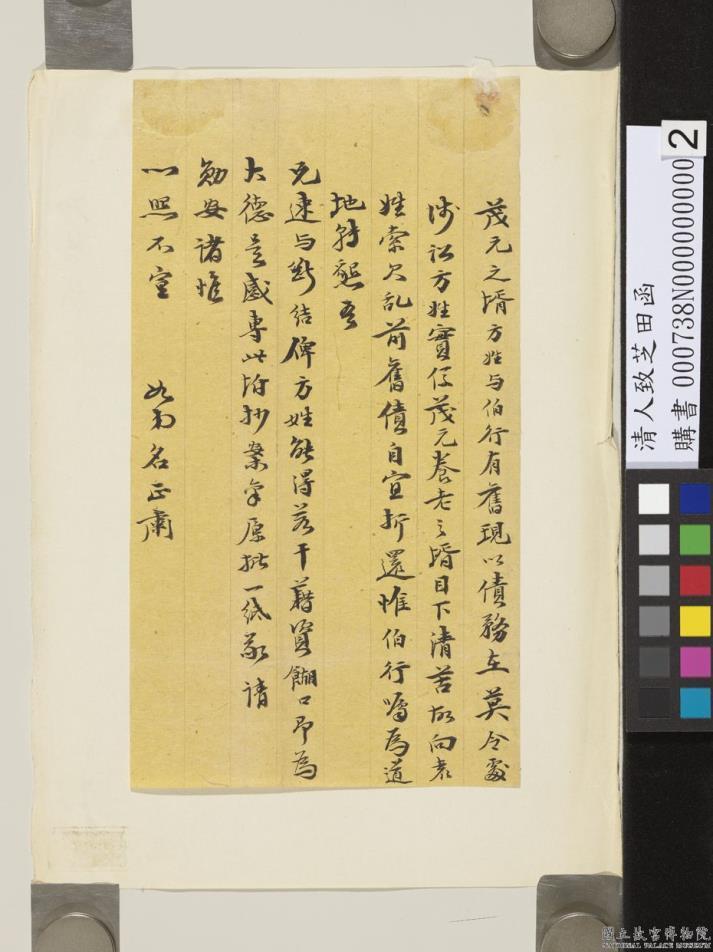 茂元之婿方姓与伯行有舊現以債務在莫令處
涉訟方姓實係茂元養老之婿目下清苦故向袁
姓索欠乱前舊債自宜折還惟伯行囑為道
地転懇吾
兄速与斷結俾方姓能得若干藉資餬口即為
大德是感專此坿抄案氣原批一紙敬請
勛安諸惟
心照不宣
如弟名正肅
清人致芝田函
購書 000738N000000000
2
國立故宮博物院
NATIONAL PALACE MUSEUM